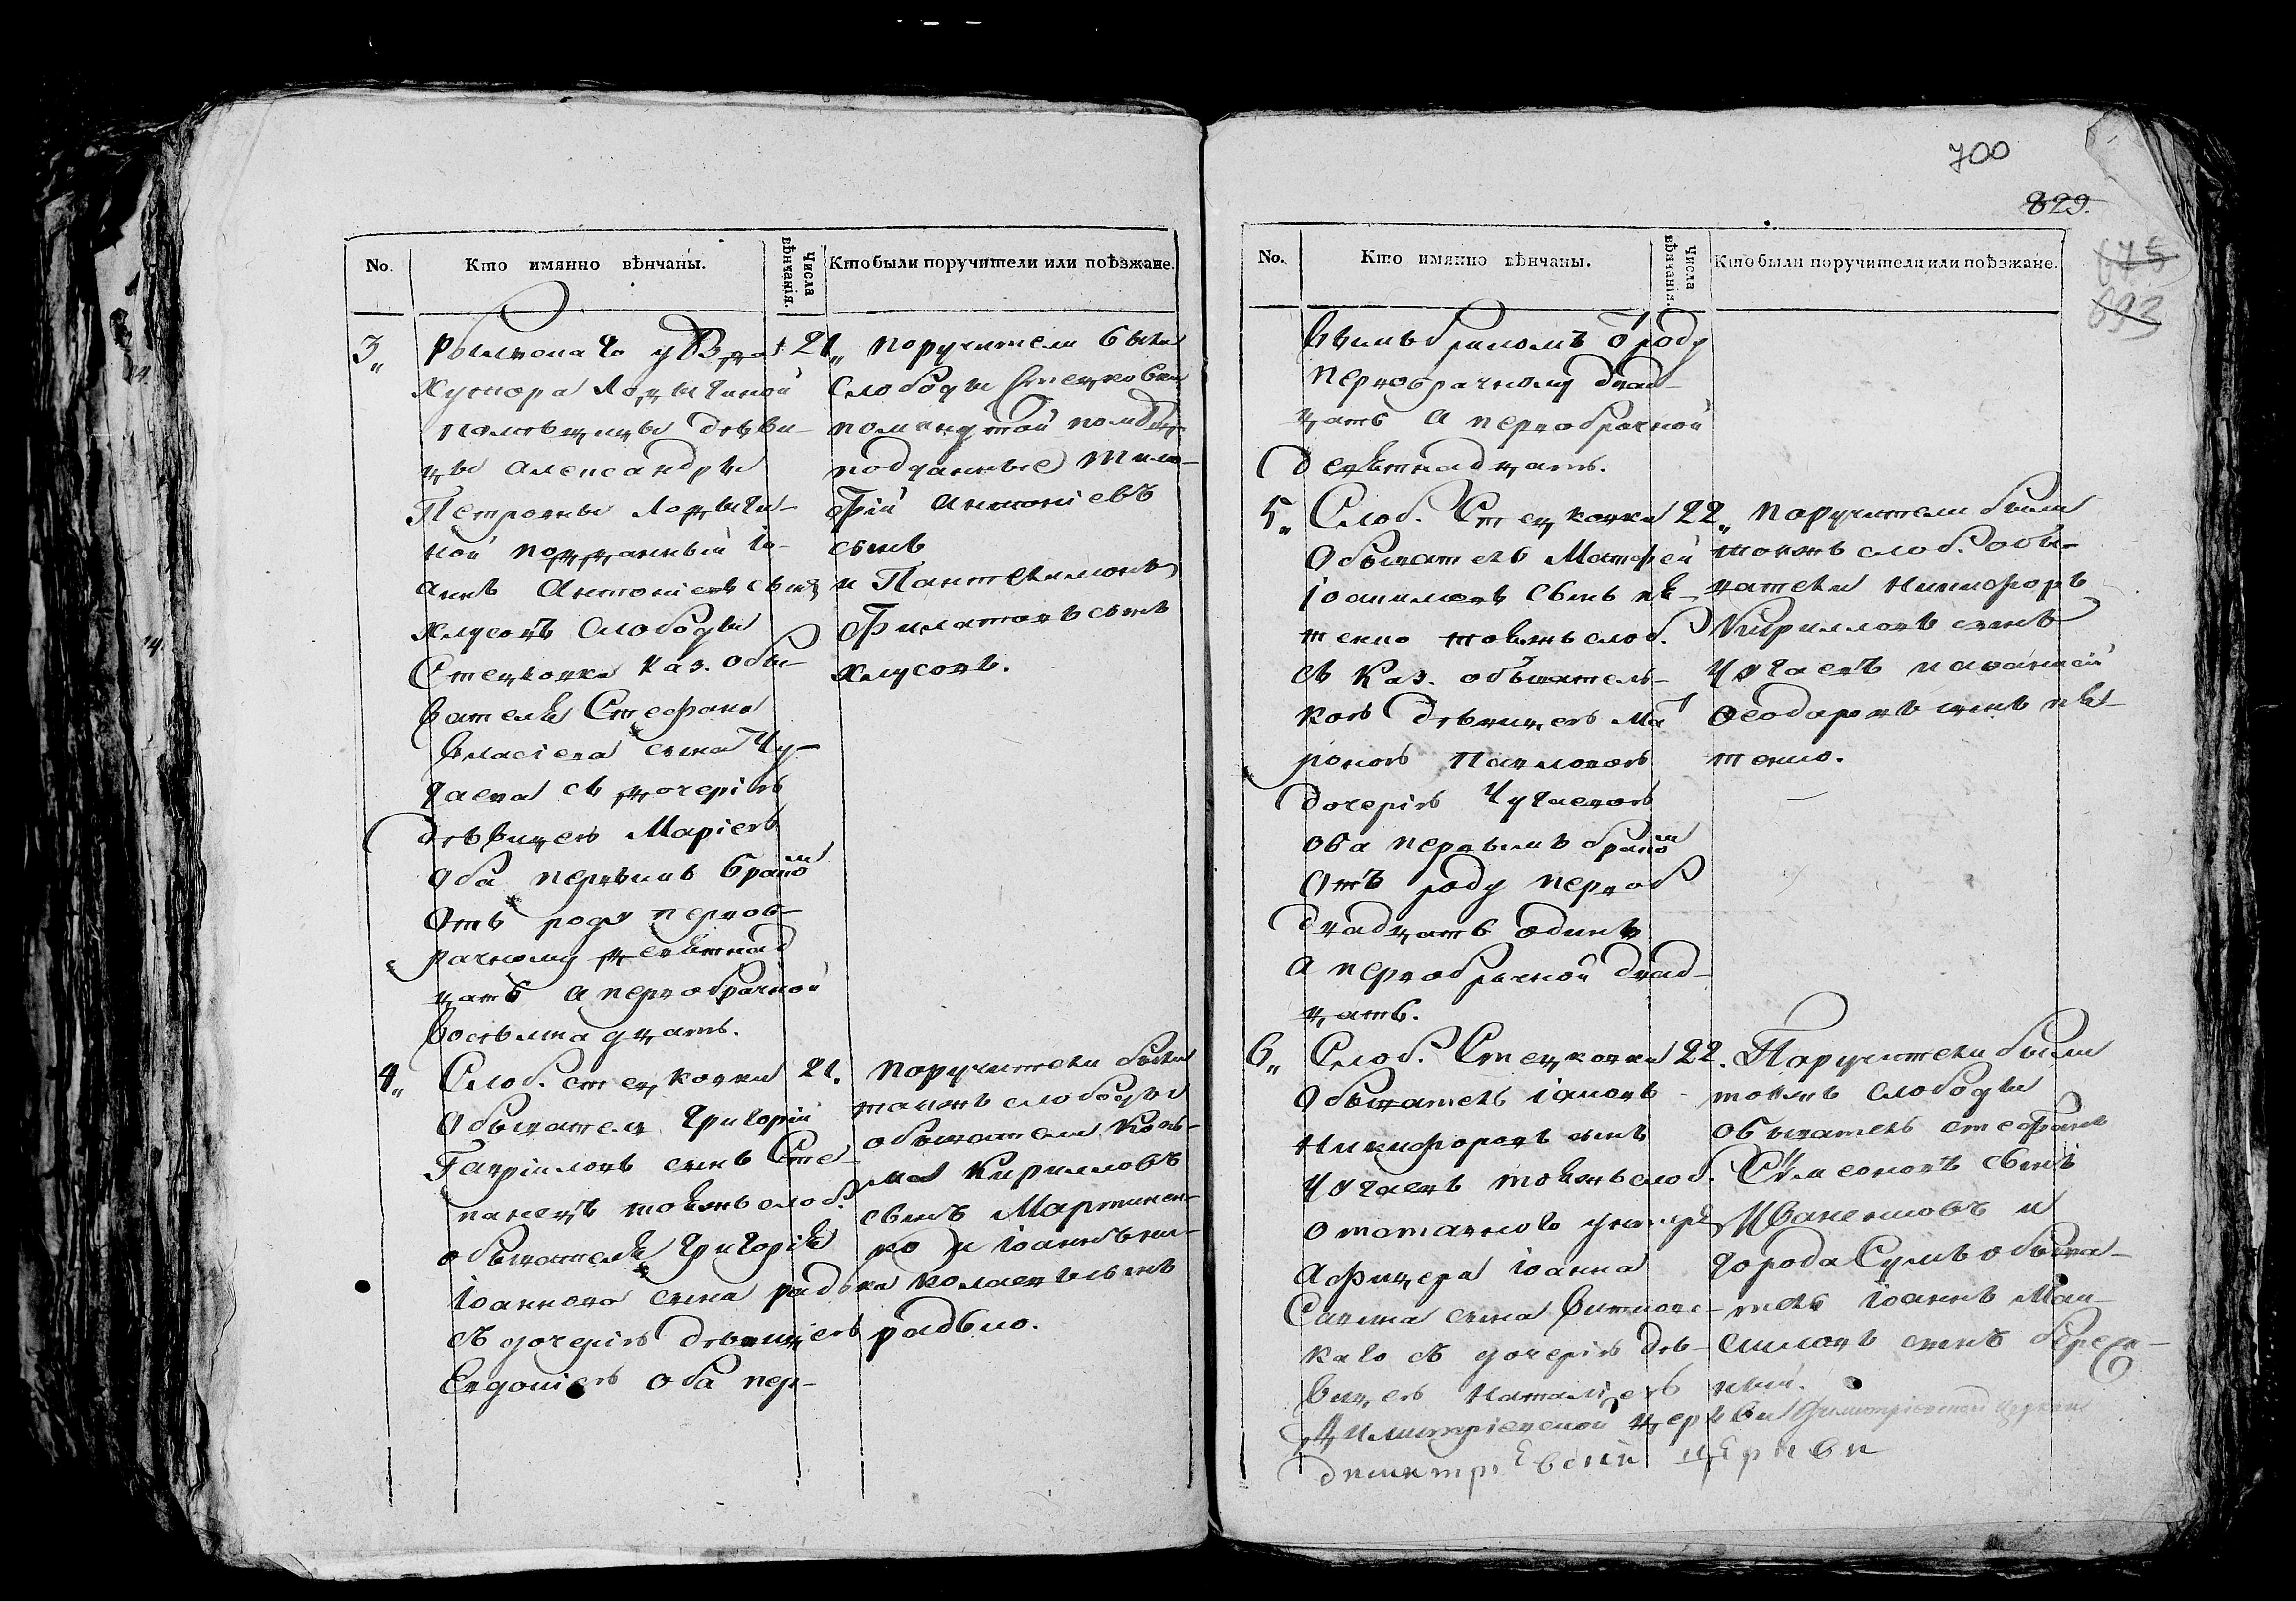 700
829.
675
693
No.
Кто имянно вѣнчаны.
Числа вѣнчанія.
Кто были поручители или поѣзжане.
3„
Рыльскаго уѣзда
хутора Лодыгиной
помѣщицы дѣви-
цы Александры
Петровны Лодыги-
ной подданный Іо-
аннъ Антоніевъ сынъ
Хлусовъ слободы
Стецковки каз. обы-
вателя Стефана
Власіева сына Чу-
гаева съ дочерію
дѣвицею Маріею
оба первымъ бракомъ
отъ роду первоб-
рачному девятнад
цать а первобрачной
восѣмнадцать.
21„
поручители были
слободы Стецковки
подданные Тимо-
фій Антоніевъ
сынъ
и Пантелимонъ
Филатовъ сынъ
Хлусовъ.
4„
Слоб. Стецковки
обыватель Григорій
Гавріиловъ сынъ Сте-
панецъ тояжъ слоб.
обывателя Григорія
Іоаннова сына радь
съ дочерію дѣвицею
Евдокіею оба пер-
21.
поручители были
таяжъ слободы
обыватели Козь-
ма Кирилловъ
сынъ Мартинен-
ко и Іоаннъ Ни-
колаевъ сынъ
радько.
No.
Кто имянно вѣнчаны.
Числа вѣнчанія.
Кто были поручители или поѣзжане.
вымъ бракомъ ѿ роду
первобрачному двад-
цать а первобрачной
девятнадцать.
5„
Слоб. Стецковки
обыватель Матфей
Іоакимовъ сынъ
тояжъ слоб.
съ каз. обыватель-
кою дѣвицею Ма
рою Павловою
дочерію Чугаевою
оба первымъ бракомъ
отъ роду первоб
двадцать одинъ
а первобрачной двад-
цать.
22„
поручители были
тояжъ слоб. обы-
ватели Никифоръ
Кирилловъ сынъ
Чугаевъ и Афанасій
Ѳеодоровъ сынъ
6„
Слоб. Стецковки
обыватель Іаковъ
Никифоровъ сынъ
Чугаевъ тояжъ слоб.
отставнаго унтеръ
афицера Іоанна
Саввина сына Витковс-
каго съ дочерію дѣ-
вицею Наталіею
22.
Поручители были
тояжъ слободы
обыватель Стефанъ
Сѵмеоновъ сынъ
Иваненковъ и
города Сумъ обыва-
тель Іоаннъ Мак-
симовъ сынъ Береж-
ный.
Димитріевской церкви Димитріевской церкви
димитріевской церкви